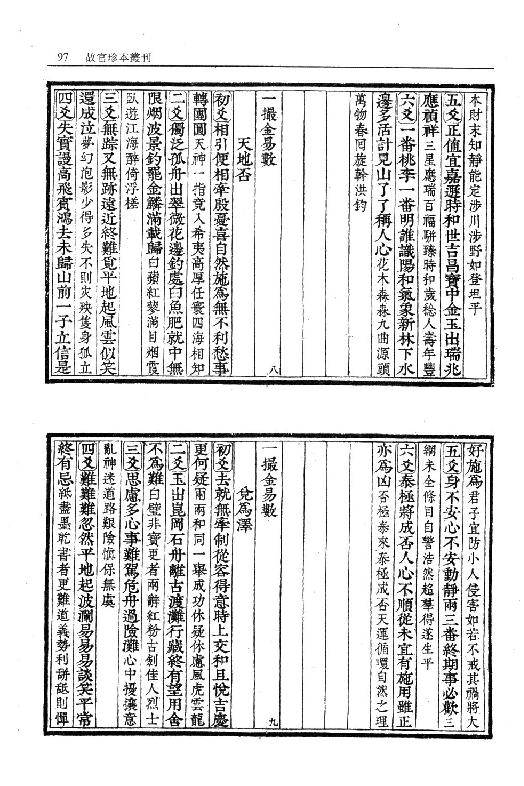 97 故宮珍本叢刊
本財末知靜能定涉川涉野如登坦平
五爻正值宜嘉遯時和世吉昌寶中金玉出瑞兆
應禎祥三星應瑞百福駢臻時和歲稔人壽年豐
六爻一番桃李一番明誰識陽和氣象新林下水
邊多活計見山了了稱人心花木森森九曲源頭
萬物春回旋斡洪鈞
一撮金易數 八
天地否
初爻相引便相牽殷憂喜自然施為無不利愁事
轉團圓天神一指竟入希夷高厚任寰四海相知
二爻獨泛孤舟出翠微花邊釣處白魚肥就中無
限嫏波景釣罷金鱗滿載歸白蘋紅蓼滿目烟霞
臥遊江海醉倚浮槎
三爻無踪又無跡遠近終難覓平地起風雲似笑
還成泣夢幻泡影少得多失不則災殃隻身孤立
四爻失實謾高飛賓鴻去未歸山前一子立信是
好施為君子宜防小人侵害如若不戒其禍將大
五爻身不安心不安動靜兩三番終期事必歡三
綱未全條目自警浩然超羣得遂生平
六爻泰極將成否人心不順從未宜有施用雖正
亦為凶否極泰來泰極成否天運循環自然之理
一撮金易數 九
兌為澤
初爻去就無牽制從容得意時上交和且悅吉慶
更何疑兩兩和同一舉成功休疑休慮風虎雲龍
二爻玉出崑岡石舟離古渡灘行藏終有望用舍
不為難白璧非寶更者兩辭紅粉古劍佳人烈士
三爻思慮多心事難駕危舟過險灘心中擾攘意
亂神迷道路艱險慎保無虞
四爻難難難忽然平地起波瀾易易易談笑平常
終有忌紙盡墨乾書者更難道義勢利謗詆則憚